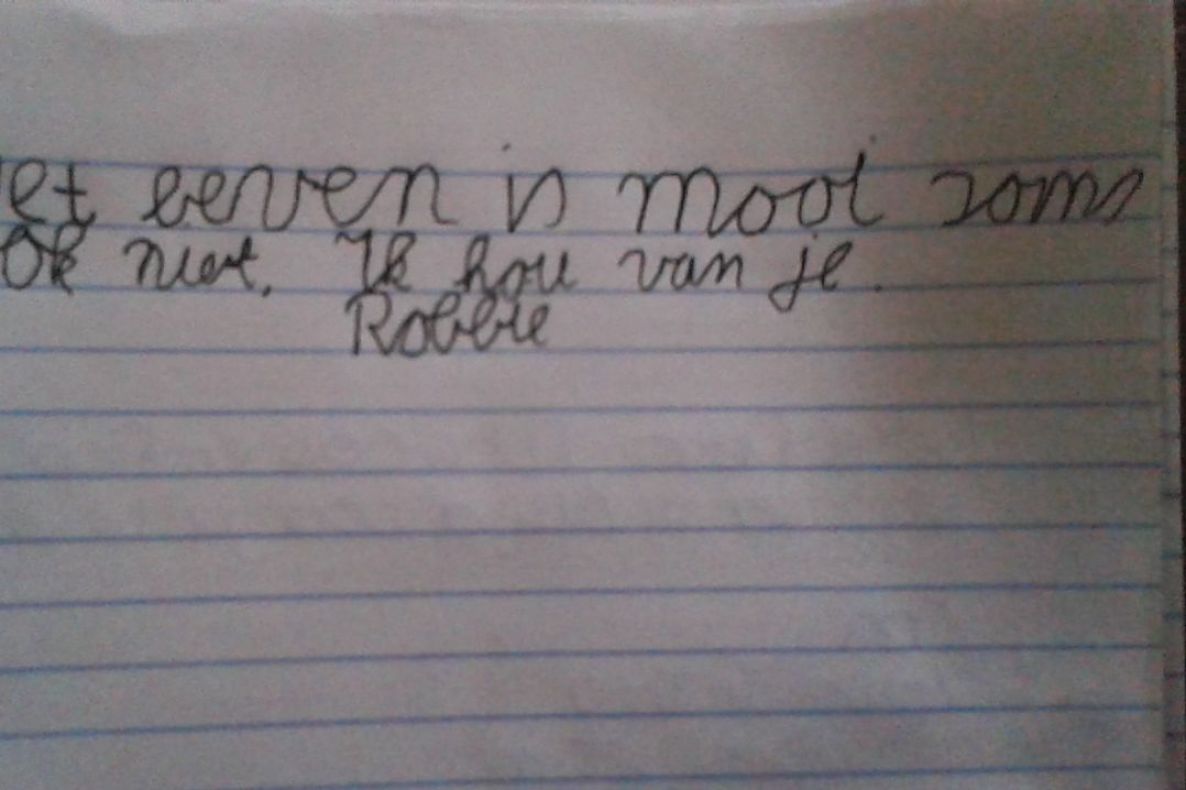 et leeven is mooi soms
Ok niet. Ik hou van je.
Robbie